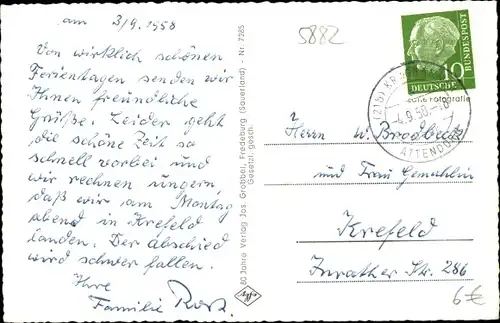 am 3/9. 1958
Von wirklich schönen
Ferientagen senden wir
Ihnen freundliche
Grüße. Leider geht
die schöne Zeit so
schnell vorbei und
wir rechnen ungern,
daß wir am Montag
abend in Krefeld
landen. Der Abschied
wird schwer fallen.
Ihre
Familie
80 Jahre Verlag Jos. Grobbel, Fredeburg (Sauerland) - Nr. 7285
Gesetzl. gesch.
5882
DEUTSCHE BUNDESPOST
10
(21b)
-4.9.58.
ATTENDORN
Herrn W. Brodbeck
und Frau Gemahlin
Krefeld
Inrather Str. 286
6€